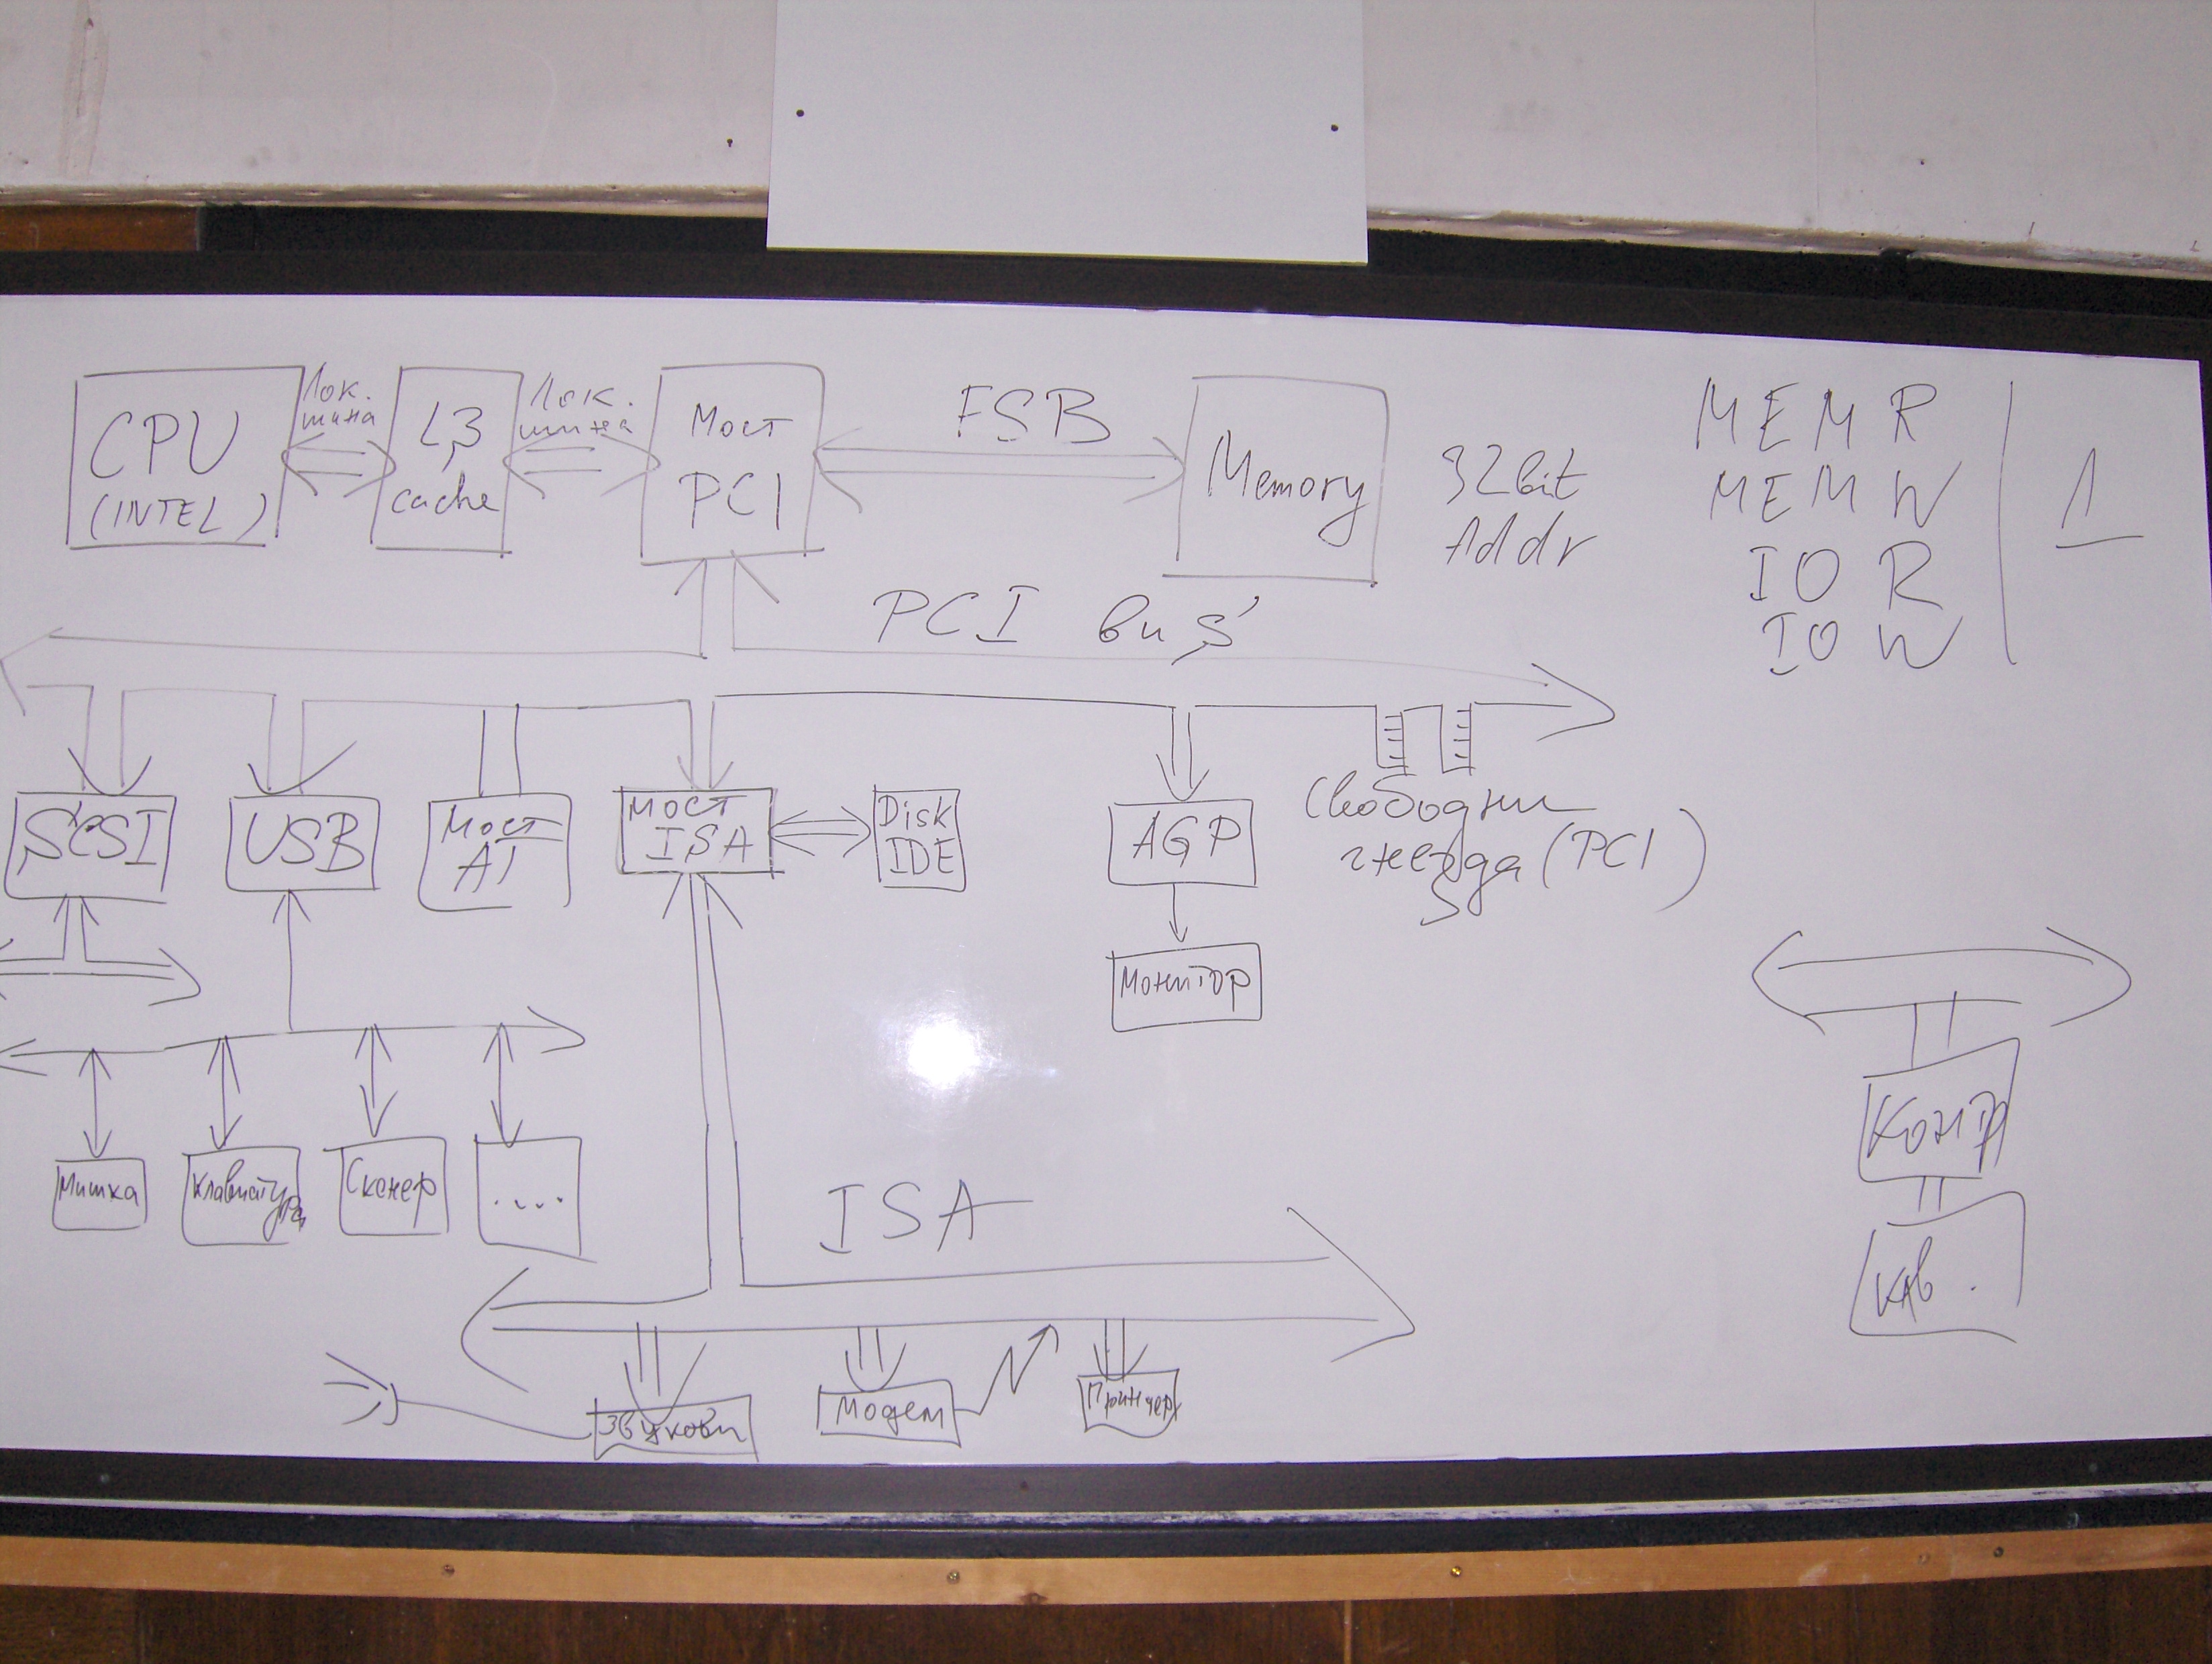 CPU
(INTEL)
Лок.
шина
L3
cache
Лок.
шина
Мост
PCI
FSB
Memory
32bit
Addr
MEMR
MEMW
IOR
IOW
1
PCI bus
SCSI
USB
Мост
AT
Мост
ISA
Disk
IDE
AGP
Свободни
гнезда (PCI)
Монитор
Мишка
Клавиатура
Скенер
....
ISA
Звукови
Модем
Принтер
Контр
Кав.